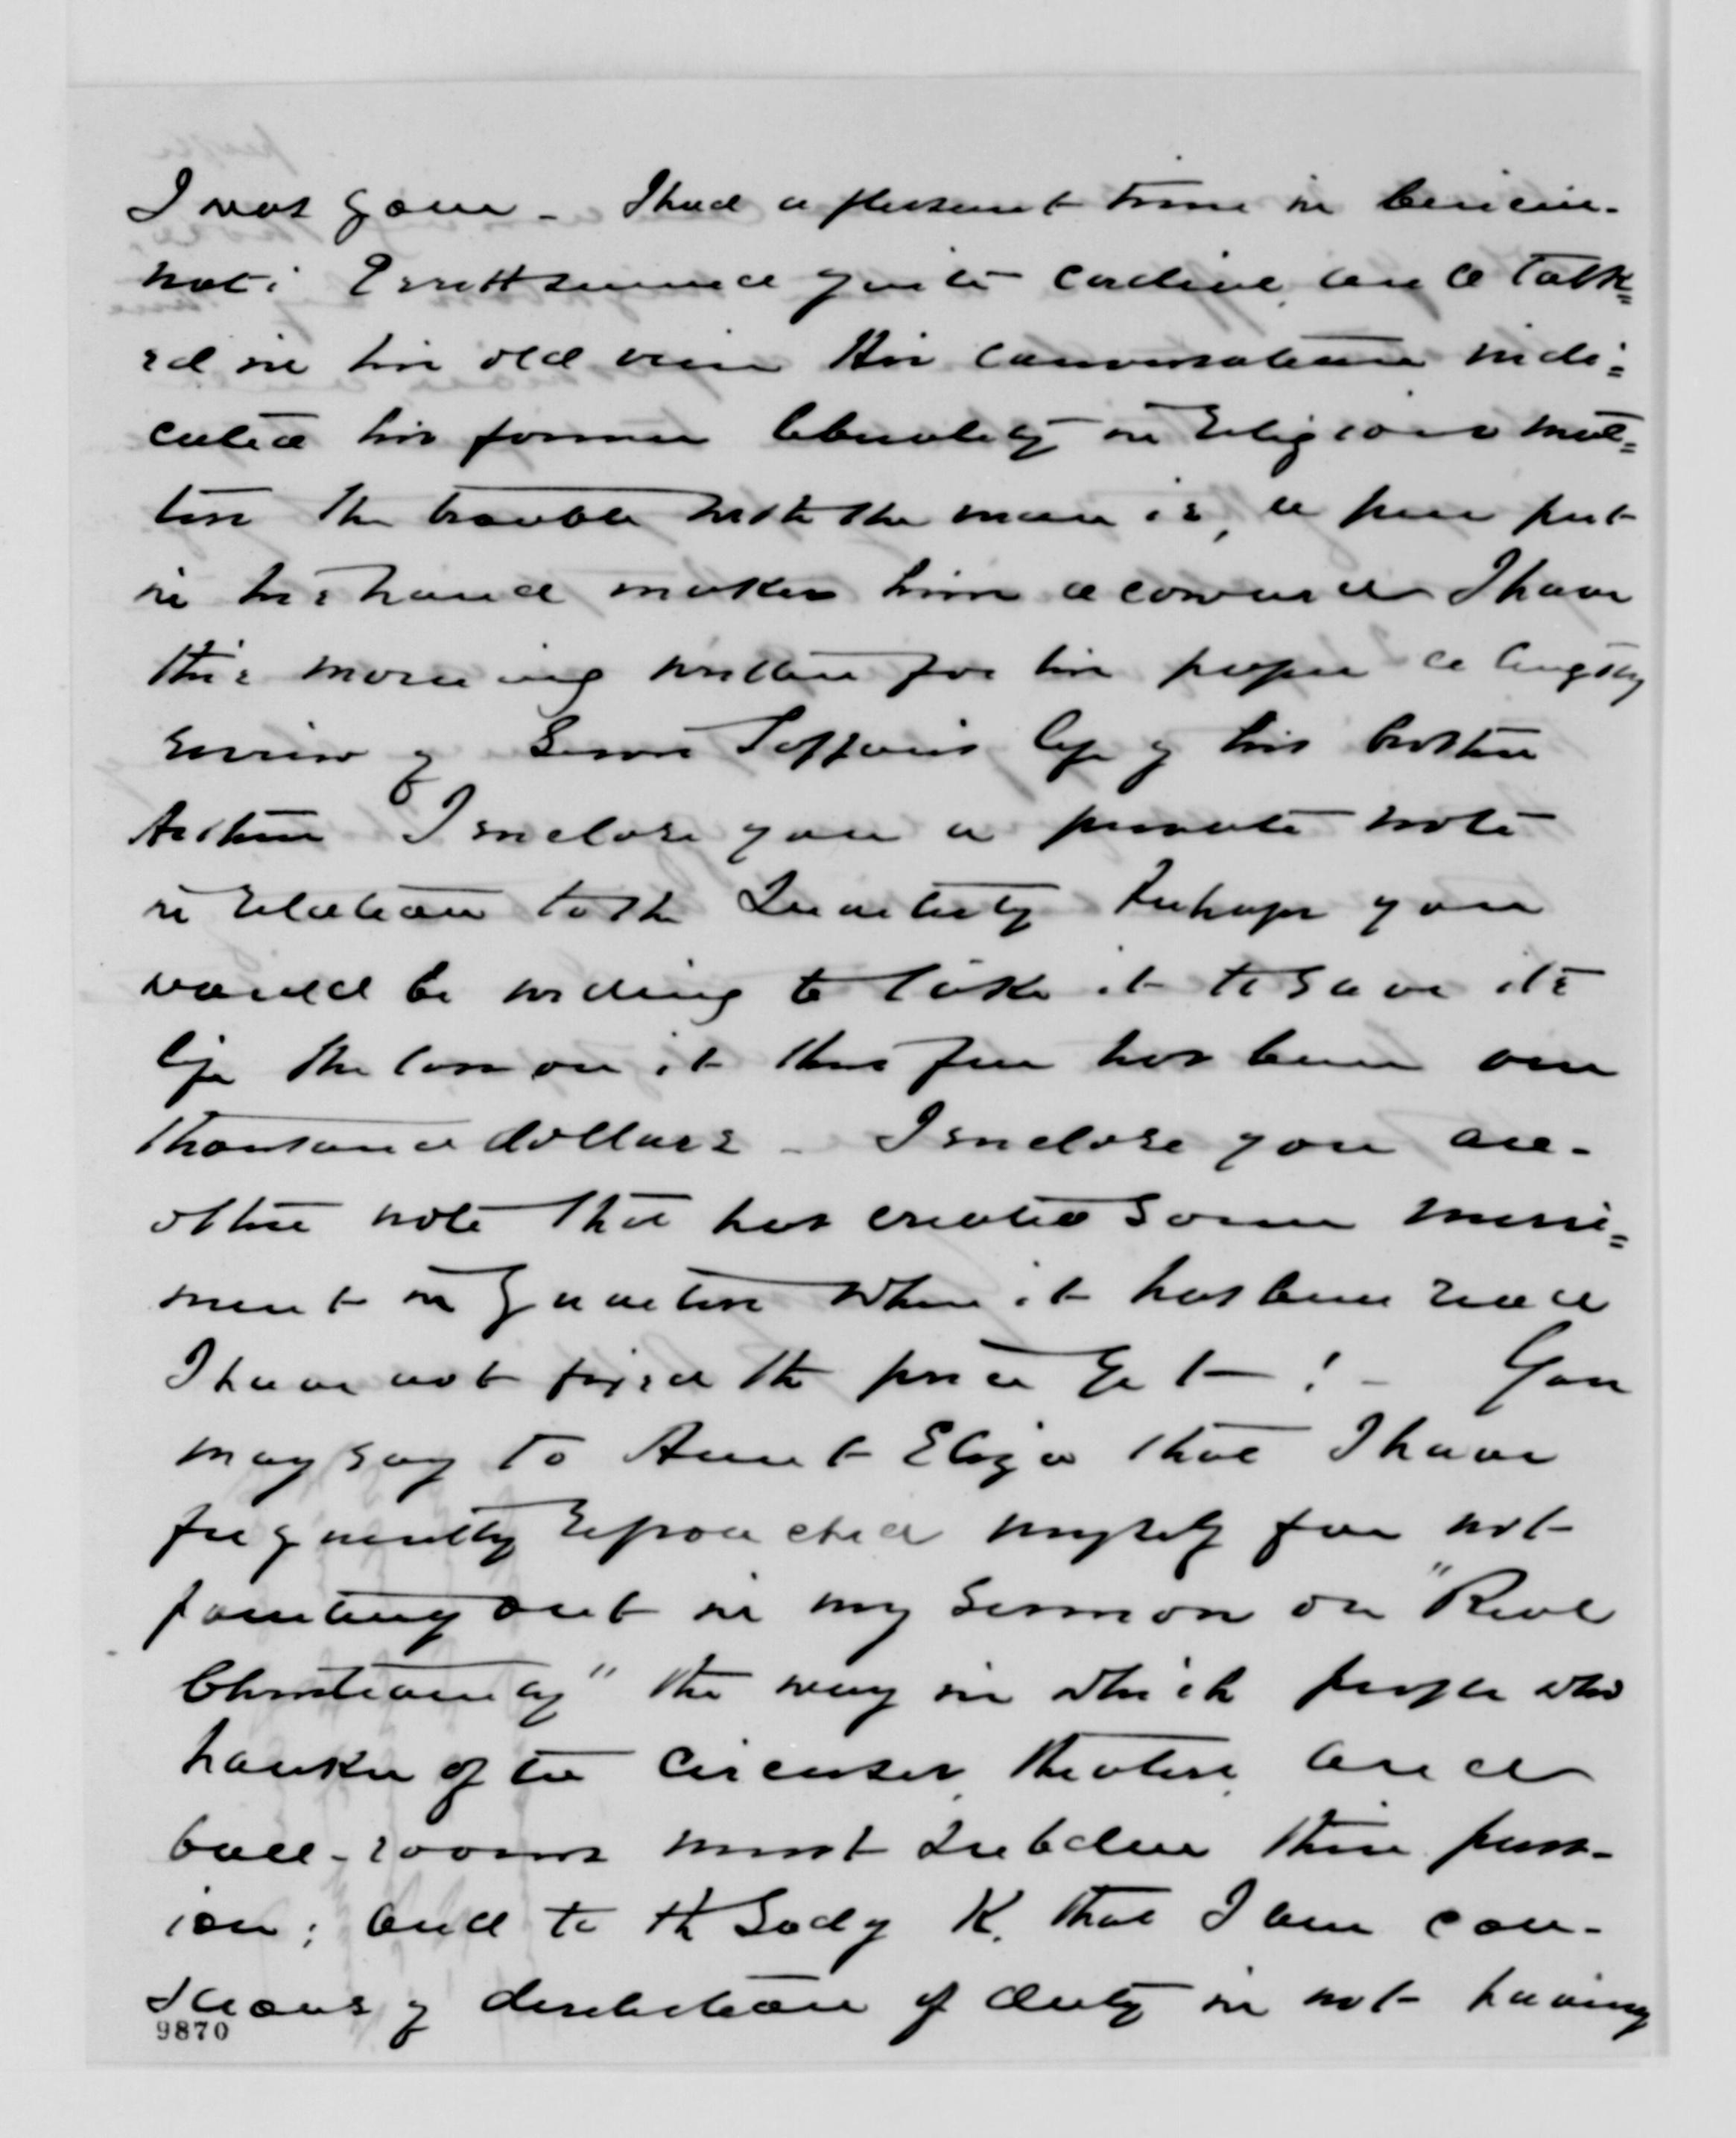 I was gone – I had a pleasant time in Cincin-
nati Errett seemed quite cordial, and talk=
ed in his old vein His conversation indi=
cated his former liberality in religious mat=
ters The trouble with the man is, a pen put
in his hand makes him a coward I have
this morning written for his paper a lengthy
review of Lewis Tappan's life of his brother
Arthur I inclose you a private note
in relation to the Quarterly Perhaps you
would be willing to take it to save its
life The loss on it thus far has been one
thousand dollars – I inclose you an-
other note that has created some merri=
ment in quarters where it has been read
I have not fixed the price yet! – You
may say to Aunt Eliza that I have
frequently reproached myself for not
pointing out in my sermon on "Real
Christianity" the way in which people who
hanker after circuses, theatres, and
ball-rooms must subdue their pass-
ion; and to the Lady K. that I am con-
scious of dereliction of duty in not having
9870